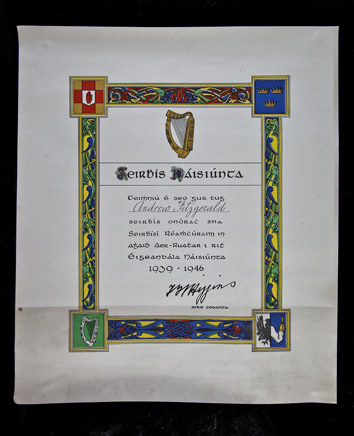 Seirbís Náisiúnta
Deimhniú é seo gur tug
Andrew Fitzgerald
seirbís onórac sna
Seirbísí Réamcúraim in
agaid Aer-Ruatar i rit
Éigeandála Náisiúnta
1939 - 1946
Aire Cosanta